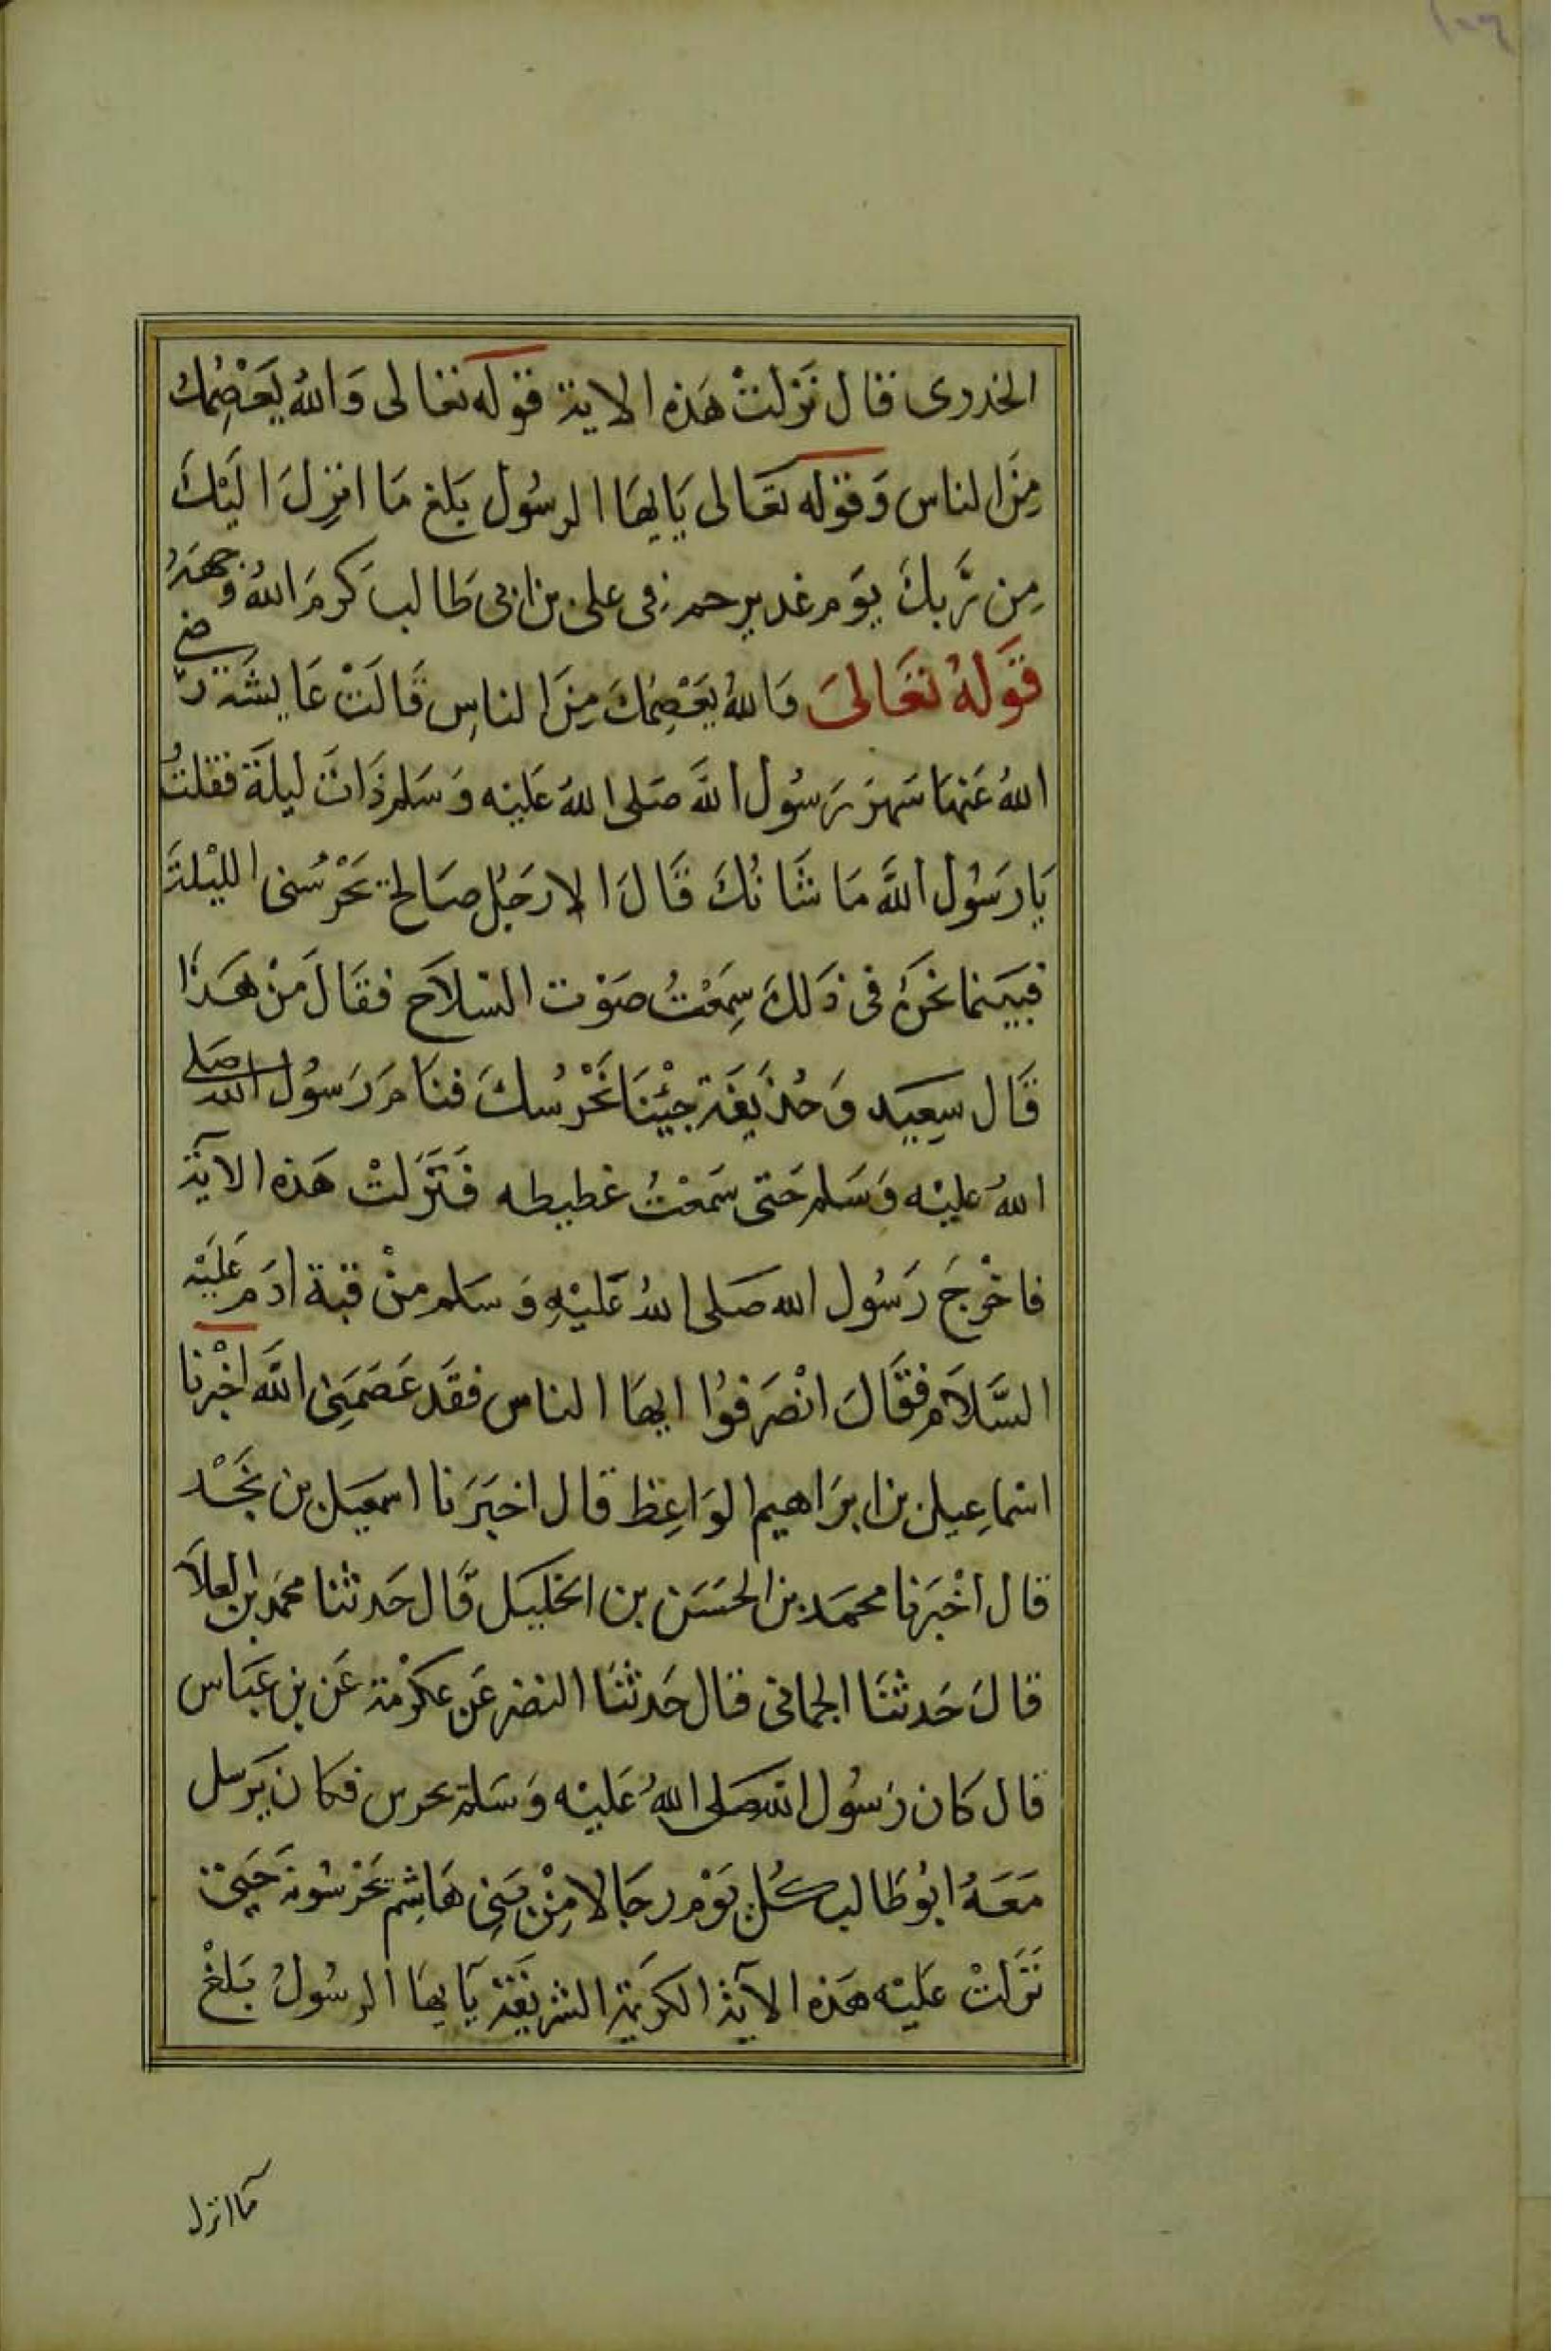 ١٠٦
الخدرى قال نَزلتْ هَذه الاية قوله تعالى وَاللهُ يَعْصِمُكَ
مِنَ الناس وَقوله تعَالى يَايهَا الرسُول بَلغ مَا انزِلَ الَيْكَ
مِن رَّبكَ يَوَم غدير خم فى على بن ابى طَالب كَرمَ اللهُ وَجهَهُ
قَولهُ تعَالىَ وَاللهُ يَعْصِمُكَ مِنَ الناسِ قَالَتْ عَايشَة رضى
اللهُ عَنهَا سَهرَ رَسُول اللَّه صَلى اللهُ عَليْه وَسَلم ذَاتَ ليلَة فقلتُ
يَا رَسُول اللَّه مَا شَانُكَ قَالَ الا رَجُل صَالح يَحْرُسُنى الليْلَة
فبَينما نحَنُ فى ذَلكَ سِمَعْتُ صَوْت السّلاَح فقَالَ مَنْ هَذَا
قَال سِعَيد وَحُذَيفَة جِئْنَا نحْرُسُكَ فنَامَ رَسُول الله صَلى
اللهُ عليْه وَسَلم حَتى سَمعْتُ غطيطه فَنَزَلتْ هَذه الآية
فاخْرجَ رَسُول الله صَلى اللهُ عَليْهِ وَسَلم منْ قبة ادَم عَليَه
السَّلاَم فقَالَ انْصَرفوُا ايهَا الناس فقَد عَصَمَنِى اللَّه اخْبرنا
اسْماعِيل بن ابرَاهيم الوَاعِظ قال اخبَرَنا اسمعيَل بن نجَيْد
قال اخْبَرنا محمَد بن الحسَن بن الخليَل قَال حَدثنا محمد ابن العلاَ
قالَ حَدثنَا الحمانى قال حَدثنَا النضر عَن عكرْمَة عَن بن عَبَاس
قال كان رَسُول الله صَلى اللهُ عَليْه وَسَلم يحرس فكان يَرسل
مَعَهُ ابُو طَالب كُل يَوْم رجَالا مِنْ بَنِى هَاشِم يحَرسُونه حَتى
نَزلتْ عَليْه هَذه الآية الكرَيمة الشريفَة يَايهَا الرسُولُ بَلغْ
مَا انزل